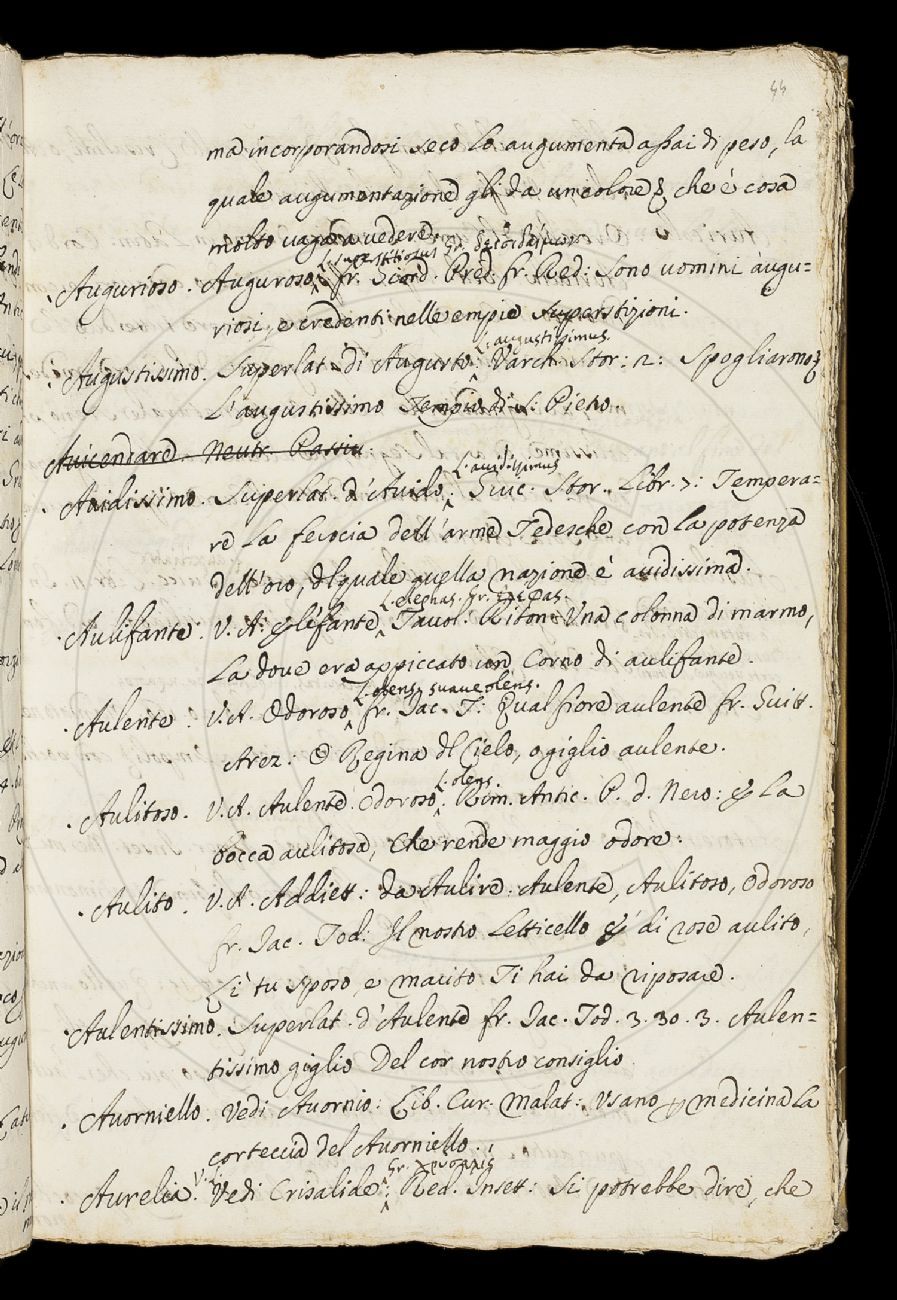 44
ma incorporandosi seco lo augumenta assai di peso, la
quale augumentazione gli da un colore che è cosa
molto vaga a vedere.
L. superstitiosus Gr.
Augurioso. Auguroso, fr. Giord. Pred. fr. Red: Sono uomini augu=
riosi, e credenti nelle empie superstizioni.
L. augustissimus.
Augustissimo. Superlat. di Augusto. Varch. Stor: 2: Spogliarono
L'augustissimo Tempio di S. Pietro.
Avicendare. Neutr. Passiv
L. avidissimus
Avidissimo. Superlat. d'Avido. Guic. Stor. Libr. 7: Tempera=
re la ferocia dell'arme Tedesche con la potenza
dell'oro, del quale quella nazione è avidissima.
L. elephas. Gr. ἐλέφας.
Aulifante. V. A. Elifante. Tavol. Riton: Una colonna di marmo,
La dove era appiccato un Corno di aulifante.
L. olens, suaveolens.
Aulente. V. A. Odoroso. fr. Jac. T: Qual fiore aulente fr. Guitt.
Arez: O Regina del Cielo, o giglio aulente.
L. olens.
Aulitoso. V. A. Aulente Odoroso. Rim. Antic. P. d. Nero: E La
bocca aulitosa, Che rende maggio odore.
Aulito. V. A. Addiett: da Aulire. Aulente, Aulitoso, Odoroso
fr. Jac. Tod: Il nostro Letticello E' di rose aulito,
Lì tu sposo, e marito Ti hai da riposare.
Aulentissimo. Superlat. d'Aulente fr. Jac. Tod. 3. 30. 3. Aulen=
tissimo giglio Del cor nostro consiglio.
Avorniello. Vedi Avornio: Lib. Cur. Malat: Usano p medicina La
corteccia del Avorniello.
Gr. χρυσαλλίς
Aurelia. Vedi Crisalide. Red. Inset: Si potrebbe dire, che